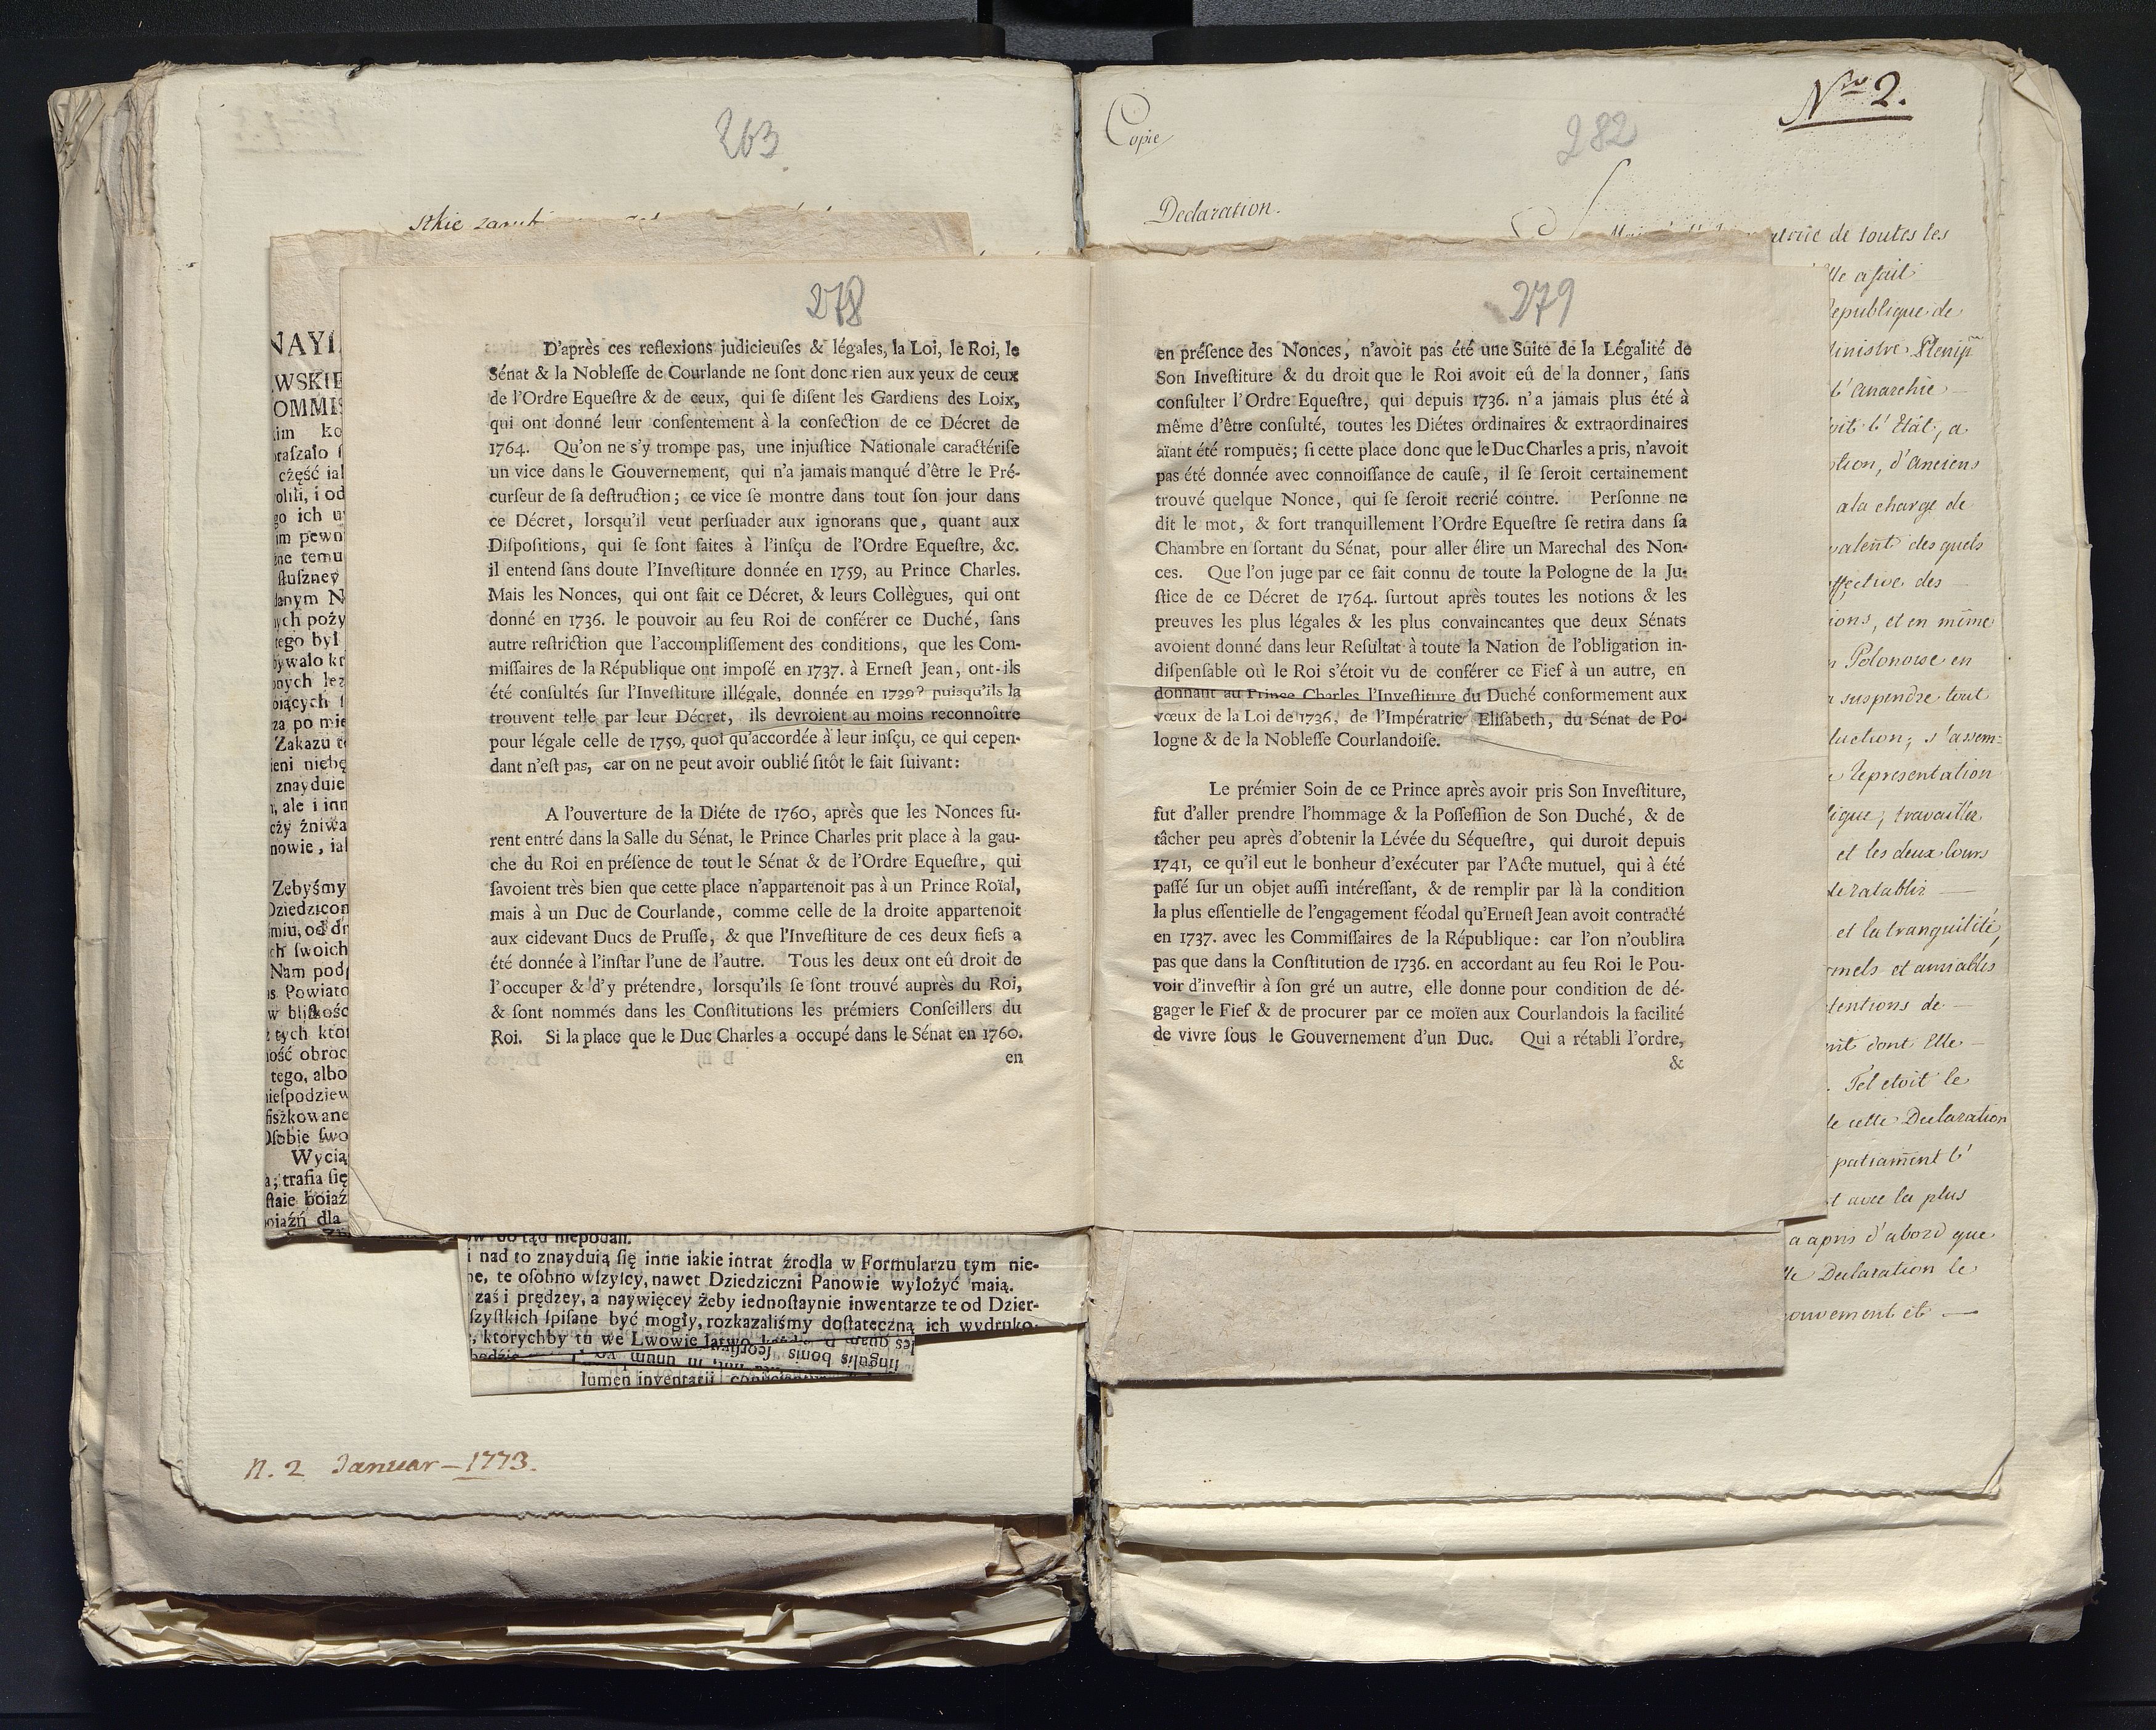 263
Copie
282
Nro 2.
stkie
Declaration.
de toutes les
278
D'après ces reflexions judicieuſes & légales, la Loi, le Roi, le
Sénat & la Nobleſſe de Courlande ne ſont donc rien aux yeux de ceux
de l'Ordre Equeſtre & de ceux, qui ſe diſent les Gardiens des Loix,
qui ont donné leur conſentement à la confection de ce Décret de
1764. Qu'on ne s'y trompe pas, une injuſtice Nationale caractériſe
un vice dans le Gouvernement, qui n'a jamais manqué d'être le Pré-
curſeur de ſa deſtruction; ce vice ſe montre dans tout ſon jour dans
ce Décret, lorsqu'il veut perſuader aux ignorans que, quant aux
Diſpoſitions, qui ſe ſont faites à l'inſçu de l'Ordre Equeſtre, &c.
il entend ſans doute l'Inveſtiture donnée en 1759, au Prince Charles.
Mais les Nonces, qui ont fait ce Décret, & leurs Collègues, qui ont
donné en 1736. le pouvoir au feu Roi de conférer ce Duché, ſans
autre reſtriction que l'accompliſſement des conditions, que les Com-
miſſaires de la République ont impoſé en 1737. à Erneſt Jean, ont-ils
été conſultés ſur l'Inveſtiture illégale, donnée en 1739? puisqu'ils la
trouvent telle par leur Décret, ils devroient au moins reconnoître
pour légale celle de 1759, quoi qu'accordée à leur inſçu, ce qui cepen-
dant n'eſt pas, car on ne peut avoir oublié ſitôt le fait ſuivant:
A l'ouverture de la Diéte de 1760, après que les Nonces fu-
rent entré dans la Salle du Sénat, le Prince Charles prit place à la gau-
che du Roi en préſence de tout le Sénat & de l'Ordre Equeſtre, qui
ſavoient très bien que cette place n'appartenoit pas à un Prince Roïal,
mais à un Duc de Courlande, comme celle de la droite appartenoit
aux cidevant Ducs de Pruſſe, & que l'Inveſtiture de ces deux fiefs a
été donnée à l'inſtar l'une de l'autre. Tous les deux ont eû droit de
l'occuper & d'y prétendre, lorsqu'ils ſe ſont trouvé auprès du Roi,
& ſont nommés dans les Conſtitutions les prémiers Conſeillers du
Roi. Si la place que le Duc Charles a occupé dans le Sénat en 1760.
en
279
en préſence des Nonces, n'avoit pas été une Suite de la Légalité de
Son Inveſtiture & du droit que le Roi avoit eû de la donner, ſans
conſulter l'Ordre Equeſtre, qui depuis 1736. n'a jamais plus été à
même d'être conſulté, toutes les Diétes ordinaires & extraordinaires
aïant été rompuës; ſi cette place donc que le Duc Charles a pris, n'avoit
pas été donnée avec connoiſſance de cauſe, il ſe ſeroit certainement
trouvé quelque Nonce, qui ſe ſeroit recrié contre. Perſonne ne
dit le mot, & fort tranquillement l'Ordre Equeſtre ſe retira dans ſa
Chambre en ſortant du Sénat, pour aller élire un Marechal des Non-
ces. Que l'on juge par ce fait connu de toute la Pologne de la Ju-
ſtice de ce Décret de 1764. ſurtout après toutes les notions & les
preuves les plus légales & les plus convaincantes que deux Sénats
avoient donné dans leur Reſultat à toute la Nation de l'obligation in-
diſpenſable où le Roi s'étoit vu de conférer ce Fief à un autre, en
donnant au Prince Charles l'Inveſtiture du Duché conformement aux
vœux de la Loi de 1736, de l'Impératric Eliſabeth, du Sénat de Po-
logne & de la Nobleſſe Courlandoiſe.
Le prémier Soin de ce Prince après avoir pris Son Inveſtiture,
fut d'aller prendre l'hommage & la Poſſeſſion de Son Duché, & de
tâcher peu après d'obtenir la Lévée du Séqueſtre, qui duroit depuis
1741, ce qu'il eut le bonheur d'exécuter par l'Acte mutuel, qui à été
paſſé ſur un objet auſſi intéreſſant, & de remplir par là la condition
la plus eſſentielle de l'engagement féodal qu'Erneſt Jean avoit contracté
en 1737. avec les Commiſſaires de la République: car l'on n'oublira
pas que dans la Conſtitution de 1736. en accordant au feu Roi le Pou-
voir d'inveſtir à ſon gré un autre, elle donne pour condition de dé-
gager le Fief & de procurer par ce moïen aux Courlandois la facilité
de vivre ſous le Gouvernement d'un Duc. Qui a rétabli l'ordre,
&
a fait
Republique de
Ministre Plenip
l'anarchie
l'Etât, a
d'Anciens
a la charge de
des quels
des
et en même
Polonoise en
suspendre tout
s'assem=
Representation
travaillée
et les deux Cours
et la tranquilité,
et amiables
de
dont Elle
Tel etoit le
cette Declaration
l'
avec la plus
a apris d'abord que
Declaration le
et
i nad to znayduią ſię inne iakie intrat źrodła w Formularzu tym nie-
te oſobno wſzyſcy, nawet Dziedziczni Panowie wyłożyć maią.
zaś i prędzey, a naywięcey żeby iednoſtaynie inwentarze te od Dzier-
ſzyſtkich ſpiſane być mogły, rozkazaliśmy doſtateczną ich wydruko-
ktorychby tu we Lwowie łatwo
lumen inventarii
n. 2 Januar – 1773.